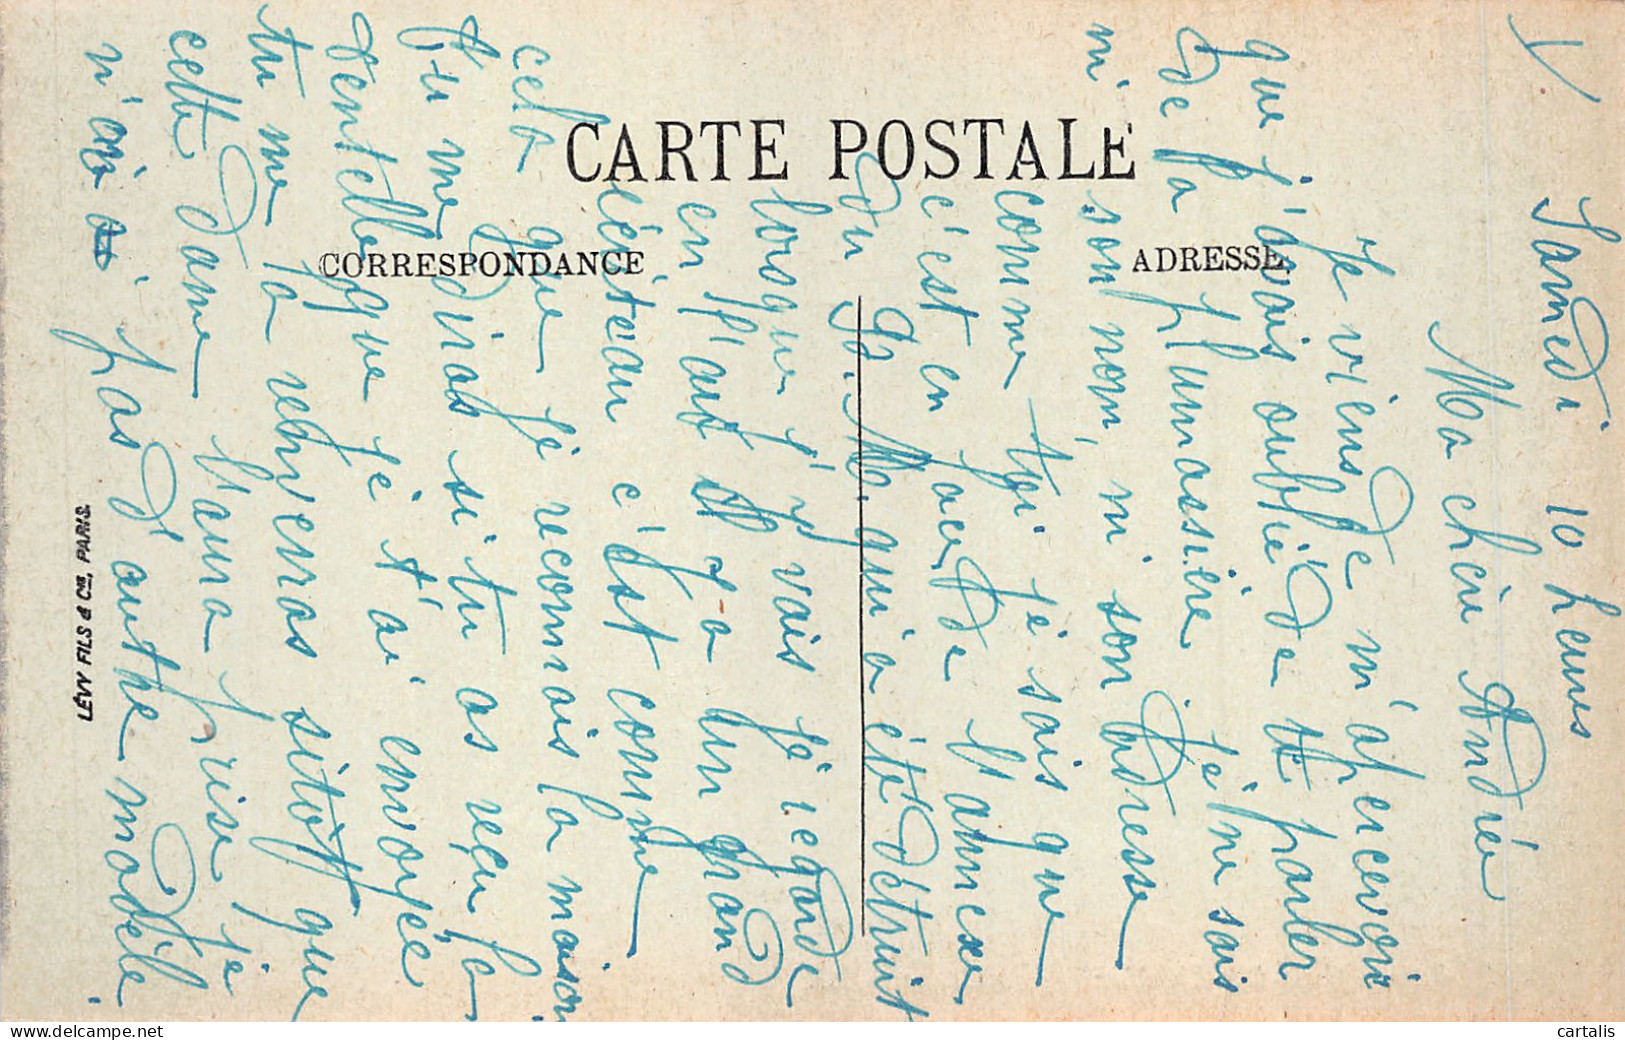 1/
Samedi 10 heures
Ma chère Andrée
Je viens de m'apercevoir
que j'avais oublié de te parler
de la plumassière je ne sais
ni son nom, ni son adresse
comme toi je sais que
c'est en face de l'annexe
du B. M. qui a été détruit
lorsque j'y vais je regarde
en l'air il y a un grand
écriteau c'est comme
cela que je reconnais la maison
Tu me diras si tu as reçu la
dentelle que je t'ai envoyée
tu me la renverras sitôt que
cette dame l'aura prise je
n'ai pas d'autre modèle.
CARTE POSTALE
CORRESPONDANCE
ADRESSE
LÉVY FILS & Cie, PARIS.
cartalis